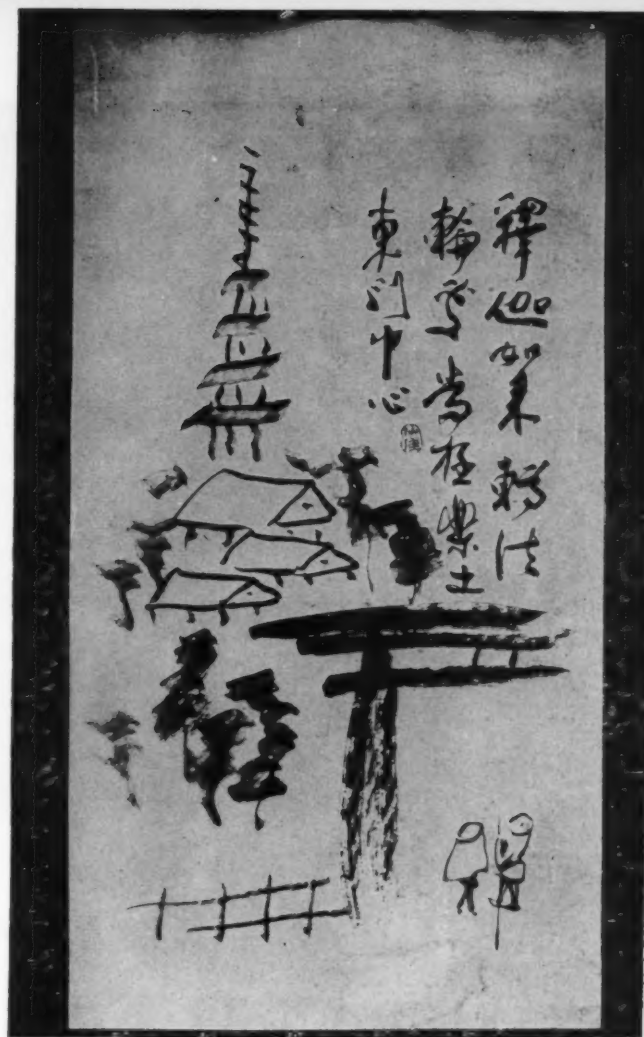 釋迦如来轉法
輪處當極樂土
東門中心